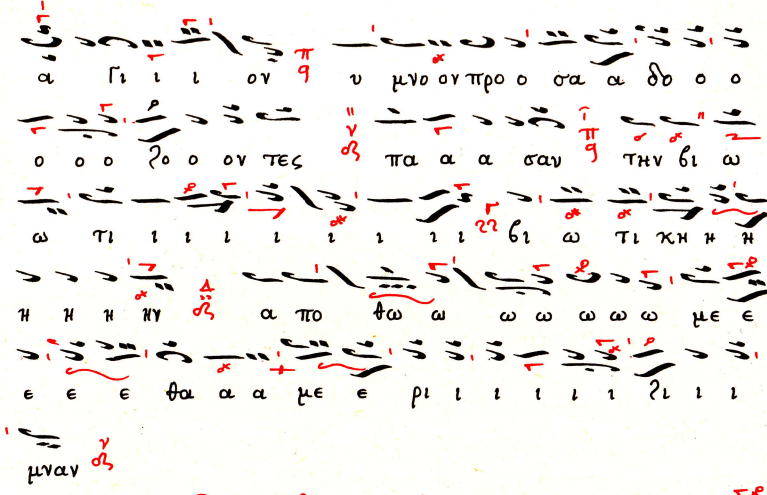 α γι ι ι ον υ μνο ον προ ο σα α δο ο ο
ο ο ο ζο ο ον τες πα α α σαν την βι ω
ω τι ι ι ι ι ι ι ι ι ι βι ω τι κη η η
η η η ην α πο θω ω ω ω ω ω ω με ε
ε ε ε θα α α με ε ρι ι ι ι ι ι ζι ι ι
μναν